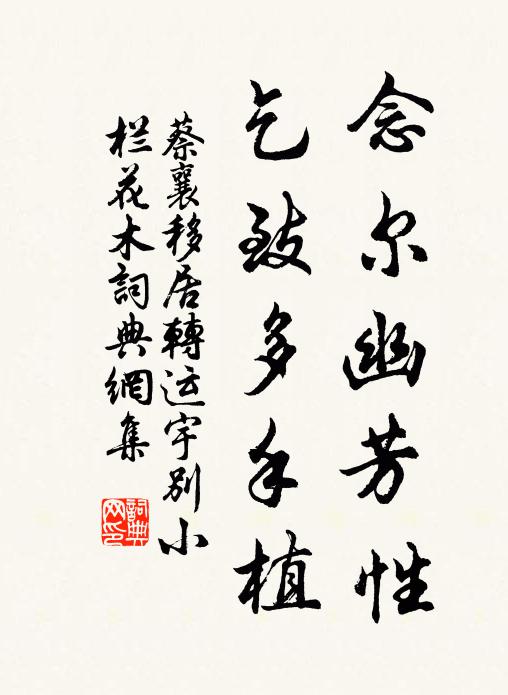 念尔幽芳性
乞致多手植
蔡襄移居轉运宇别小
栏花木詞典網集
詞典
网印